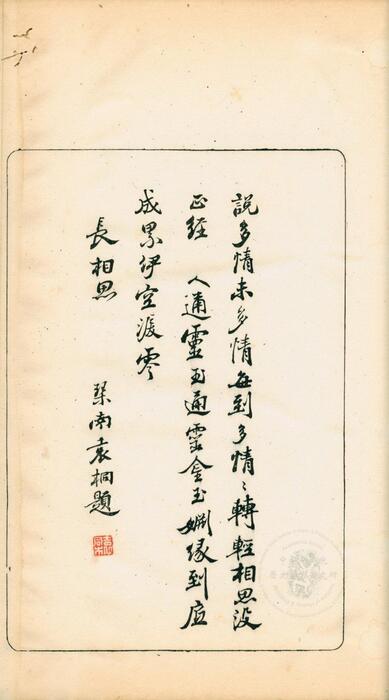 說多情未多情每到多情〻轉輕相思没
正經　人通靈玉通靈金玉姻緣到底
成累伊空淚零
長相思　　琹南袁桐題